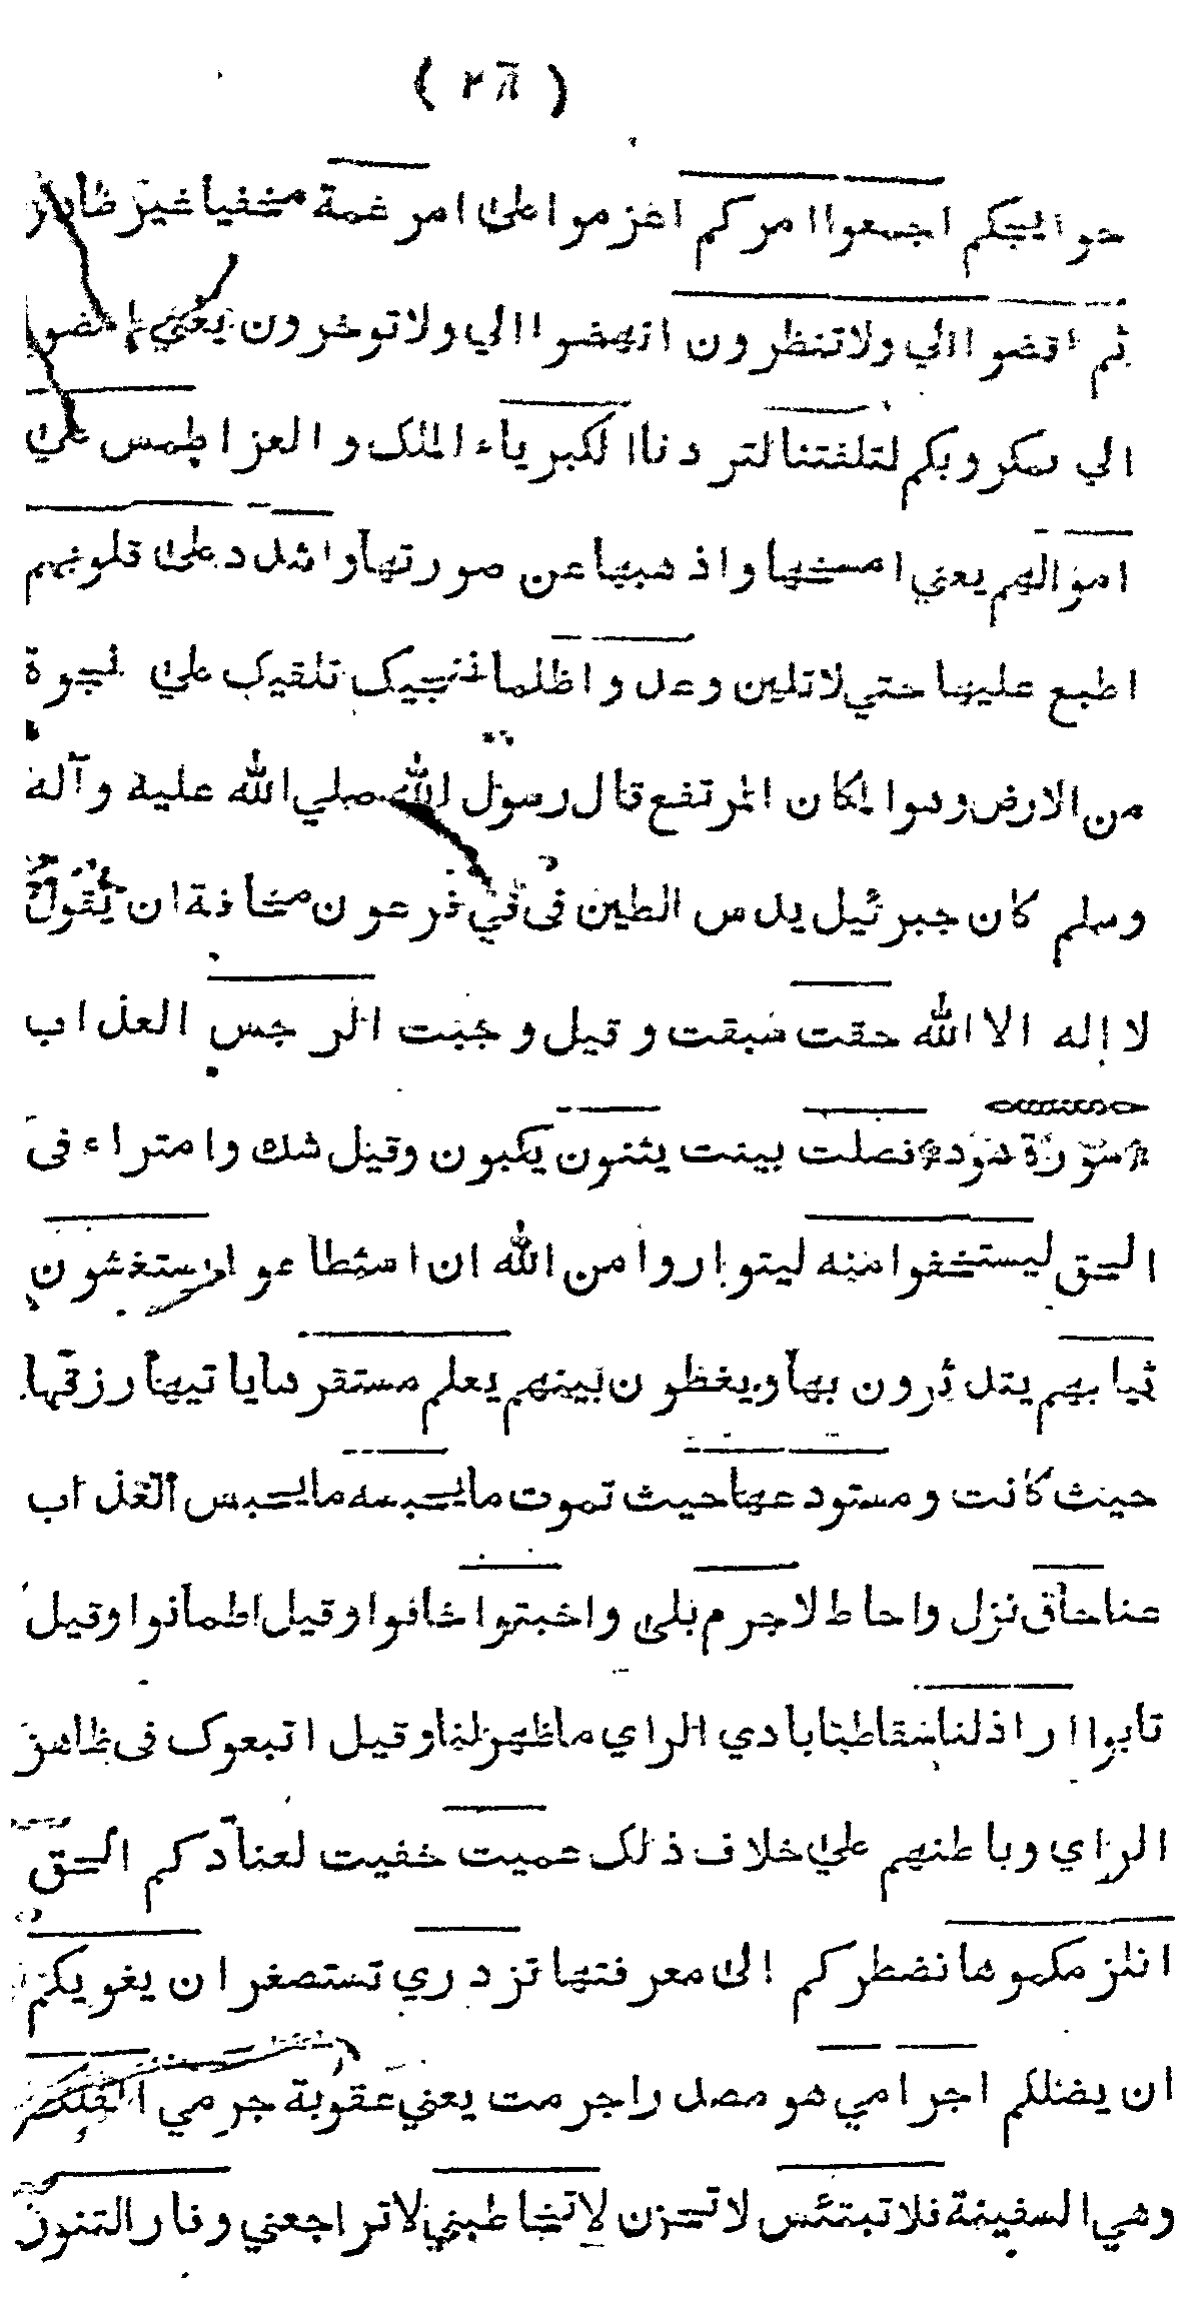 ( ٢٨ )
حوائجكم اجمعوا امركم اعزموا علي امر غمة مخفيا غير ظاهر
ثم اقضوا الي ولا تنظرون انهضوا الي ولا توخرون يعني امضوا
الي بمكروبكم لتلفتنا لتردنا الكبرياء الملك و العز اطمس علي
اموالهم يعني امسخها واذهبها عن صورتها واشدد علي قلوبهم
اطبع عليها حتي لا تلين وعدوا ظلما ننجيك نلقيك علي نجوة
من الارض وهو المكان المرتفع قال رسول الله صلي الله علية وآلة
وسلم كان جبرئيل يدس الطين فى في فرعون مخافة ان يقول
لا إله الا الله حقت سبقت وقيل وجبت الرجس العذاب
سورة هود فصلت بينت يثنون يكبون وقيل شك وامتراء فى
الحق ليستخفوا منه ليتواروا من الله ان استطاعوا يستغشون
ثيابهم يتدثرون بها ويغطون بينهم يعلم مستقرها ياتيها رزقها
حيث كانت ومستودعها حيث تموت ما يحبسه ما يحبس العذاب
عنا حاق نزل واحاط لاجرم بلى واخبتوا خافوا وقيل اطمانوا وقيل
تابوا اراذلنا سقاطنا بادي الراي ما ظهر لنا وقيل اتبعوك فى ظاهر
الراي وباطنهم علي خلاف ذلك عميت خفيت لعنادكم الحق
انلزمكموها نضطركم الى معرفتها تزدري تستصغر ان يغويكم
ان يضلكم اجرامي هو مصدر اجرمت يعني عقوبة جرمي الفلك
وهي السفينة فلا تبتئس لا تحزن لا تخاطبني لا تراجعني وفار التنور